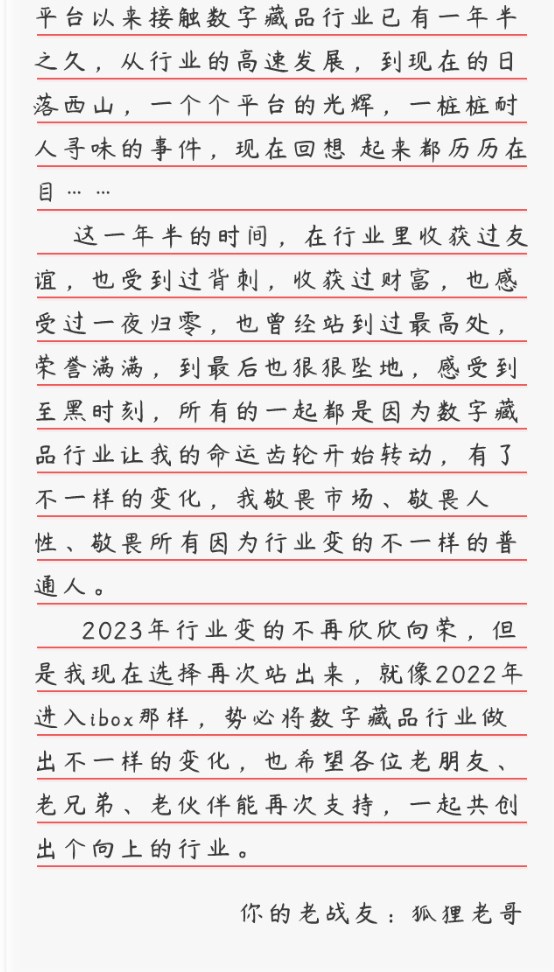 平台以来接触数字藏品行业已有一年半
之久，从行业的高速发展，到现在的日
落西山，一个个平台的光辉，一桩桩耐
人寻味的事件，现在回想 起来都历历在
目… …
这一年半的时间，在行业里收获过友
谊，也受到过背刺，收获过财富，也感
受过一夜归零，也曾经站到过最高处，
荣誉满满，到最后也狠狠坠地，感受到
至黑时刻，所有的一起都是因为数字藏
品行业让我的命运齿轮开始转动，有了
不一样的变化，我敬畏市场、敬畏人
性、敬畏所有因为行业变的不一样的普
通人。
2023年行业变的不再欣欣向荣，但
是我现在选择再次站出来，就像2022年
进入ibox那样，势必将数字藏品行业做
出不一样的变化，也希望各位老朋友、
老兄弟、老伙伴能再次支持，一起共创
出个向上的行业。
你的老战友：狐狸老哥